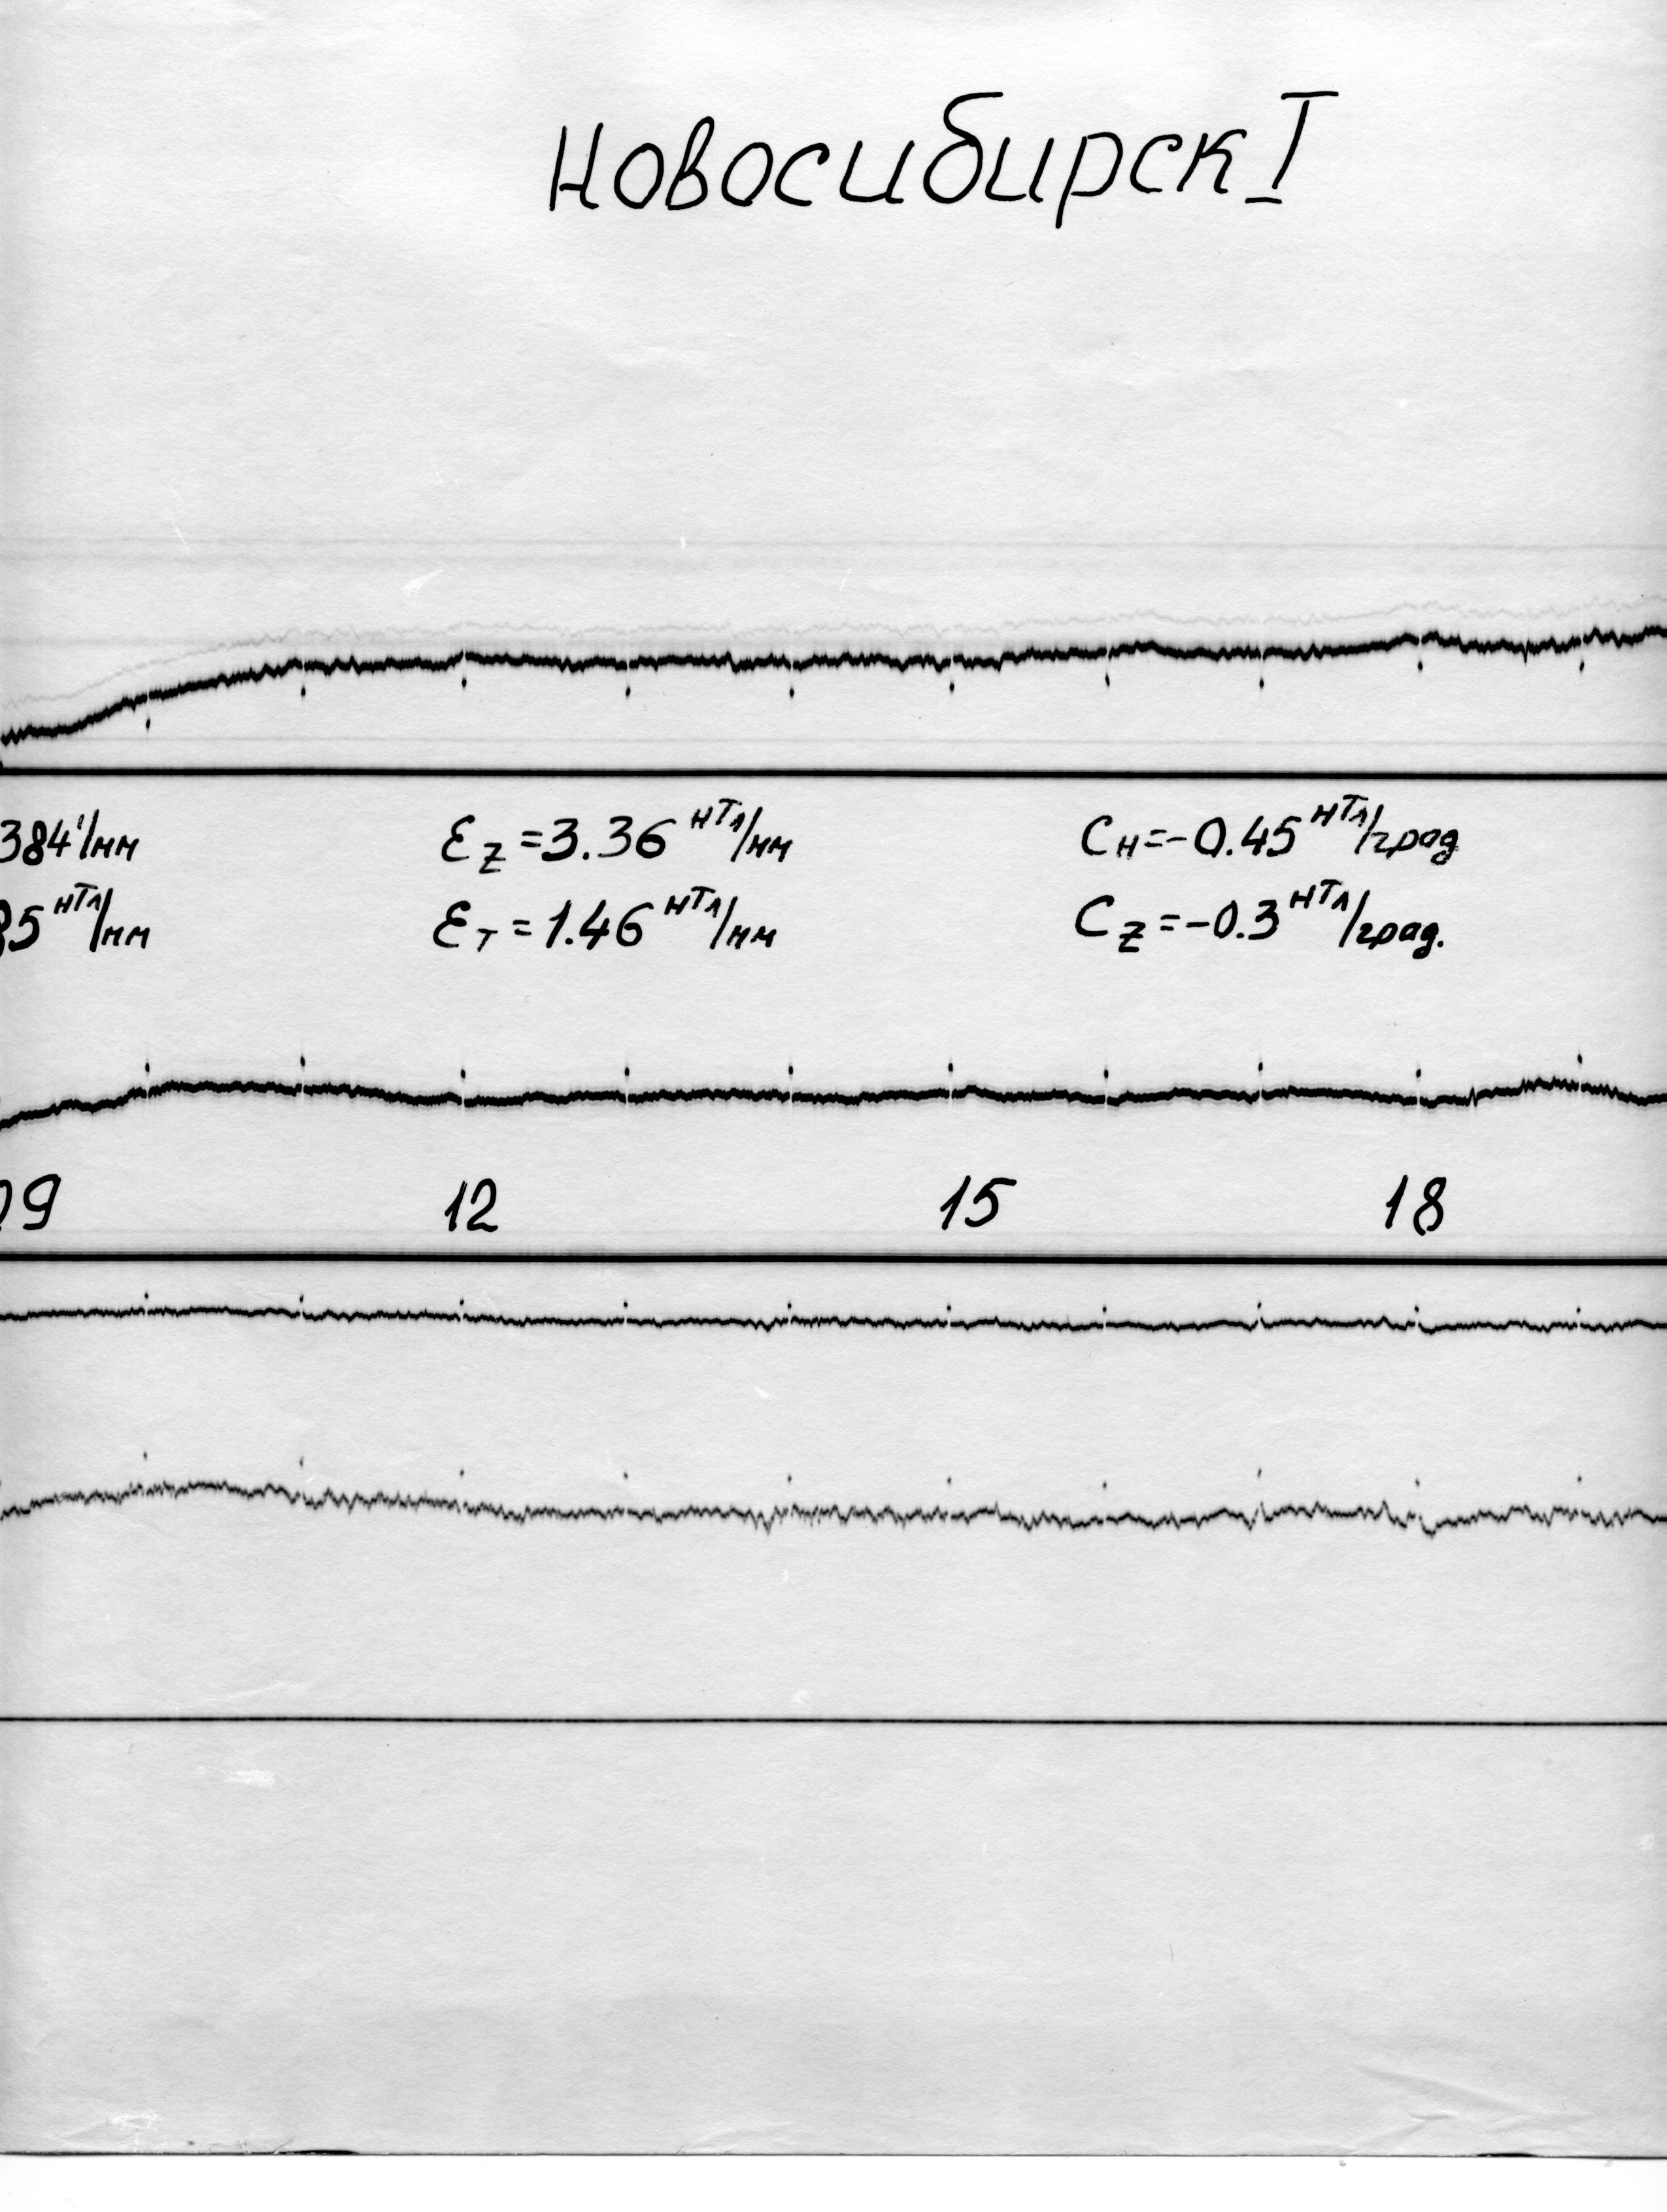 Новосибирск I
384'/мм Ɛz = 3.36 нТл/мм Cн = -0.45 нТл/град
85 нТл/мм Ɛт = 1.46 нТл/мм Cz = -0.3 нТл/град.
09 12 15 18